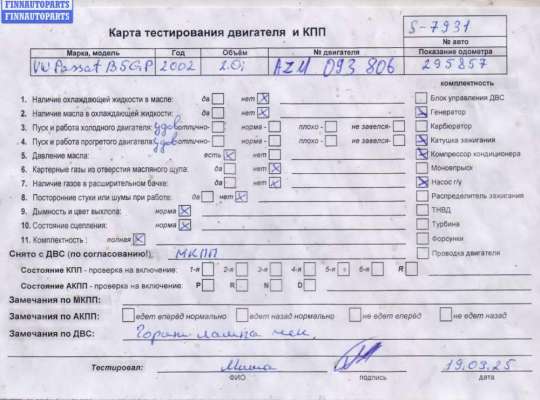 FINNAUTOPARTS
FINNAUTOPARTS
Карта тестирования двигателя и КПП
S-7931
№ авто
Марка, модель Год Объём № двигателя Показание одометра
VW Passat B5GP 2002 2.0i AZM 093806 295857
комплектность
1. Наличие охлаждающей жидкости в масле: да нет
Блок управления ДВС
2. Наличие масла в охлаждающей жидкости: да нет
Генератор
3. Пуск и работа холодного двигателя: удов отлично- норма - плохо - не завелся-
Карбюратор
4. Пуск и работа прогретого двигателя: удов отлично- норма - плохо - не завелся-
Катушка зажигания
5. Давление масла: есть нет
Компрессор кондиционера
6. Картерные газы из отверстия масляного щупа: да нет
Моновпрыск
7. Наличие газов в расширительном бачке: да нет
Насос г/у
8. Посторонние стуки или шумы при работе: да нет
Распределитель зажигания
9. Дымность и цвет выхлопа: норма
ТНВД
10. Состояние сцепления: норма
Турбина
11. Комплектность : полная
Форсунки
Снято с ДВС (по согласованию!), МКПП
Проводка двигателя
Состояние КПП - проверка на включение: 1-я 2-я 3-я 4-я 5-я 6-я R
Состояние АКПП - проверка на включение: P R N D
Замечания по МКПП:
Замечания по АКПП: едет вперёд нормально едет назад нормально не едет вперёд не едет назад
Замечания по ДВС: Горит лампа чек.
Тестировал: Миша 19.03.25
ФИО подпись дата